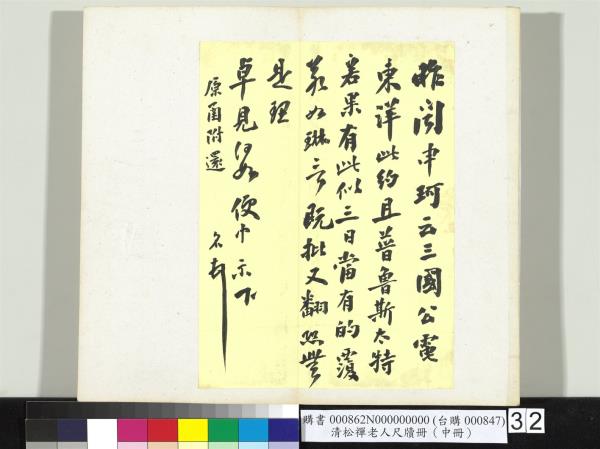 昨聞申珂云三國公電
東洋此約且普魯斯太特
若果有此似三日當有的覆
若如琳言既批又翻恐無
是理
卓見如何便中示下
名押
原函附還
購書 000862N000000000 (台購 000847)
清松禪老人尺牘冊（中冊）
32